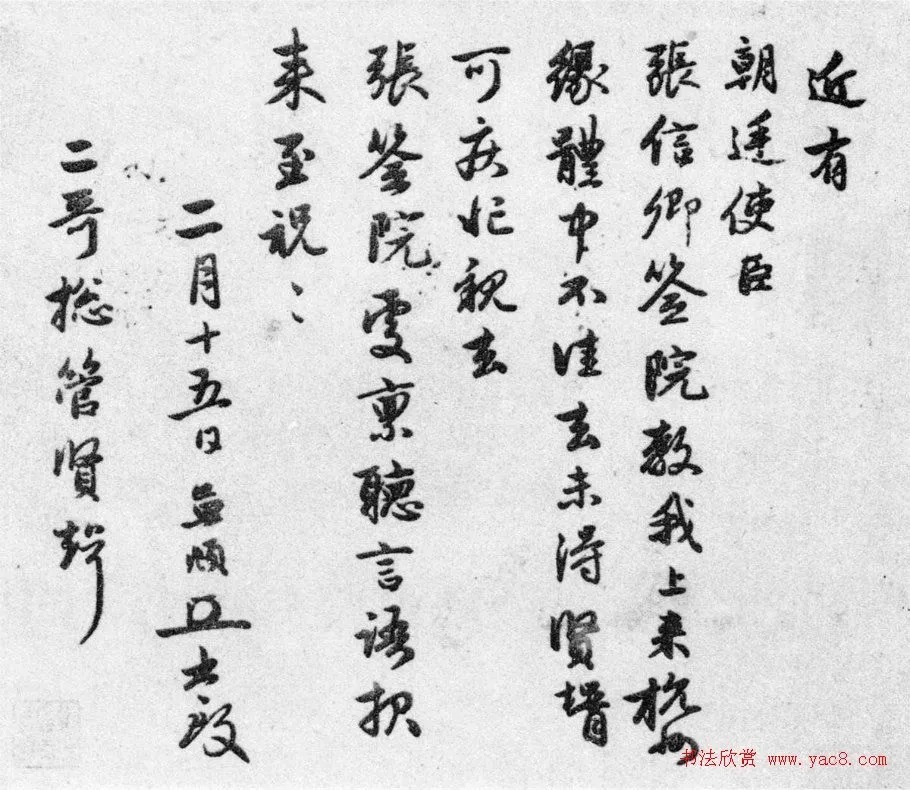 近有
朝廷使臣
張信卿簽院教我上来杭州
緣體中不佳去未得賢壻
可疾忙親去
張簽院處稟聽言語报
来至祝〻
二月十五日孟頫书致
二哥捴管賢壻
书法欣赏 www.yac8.com